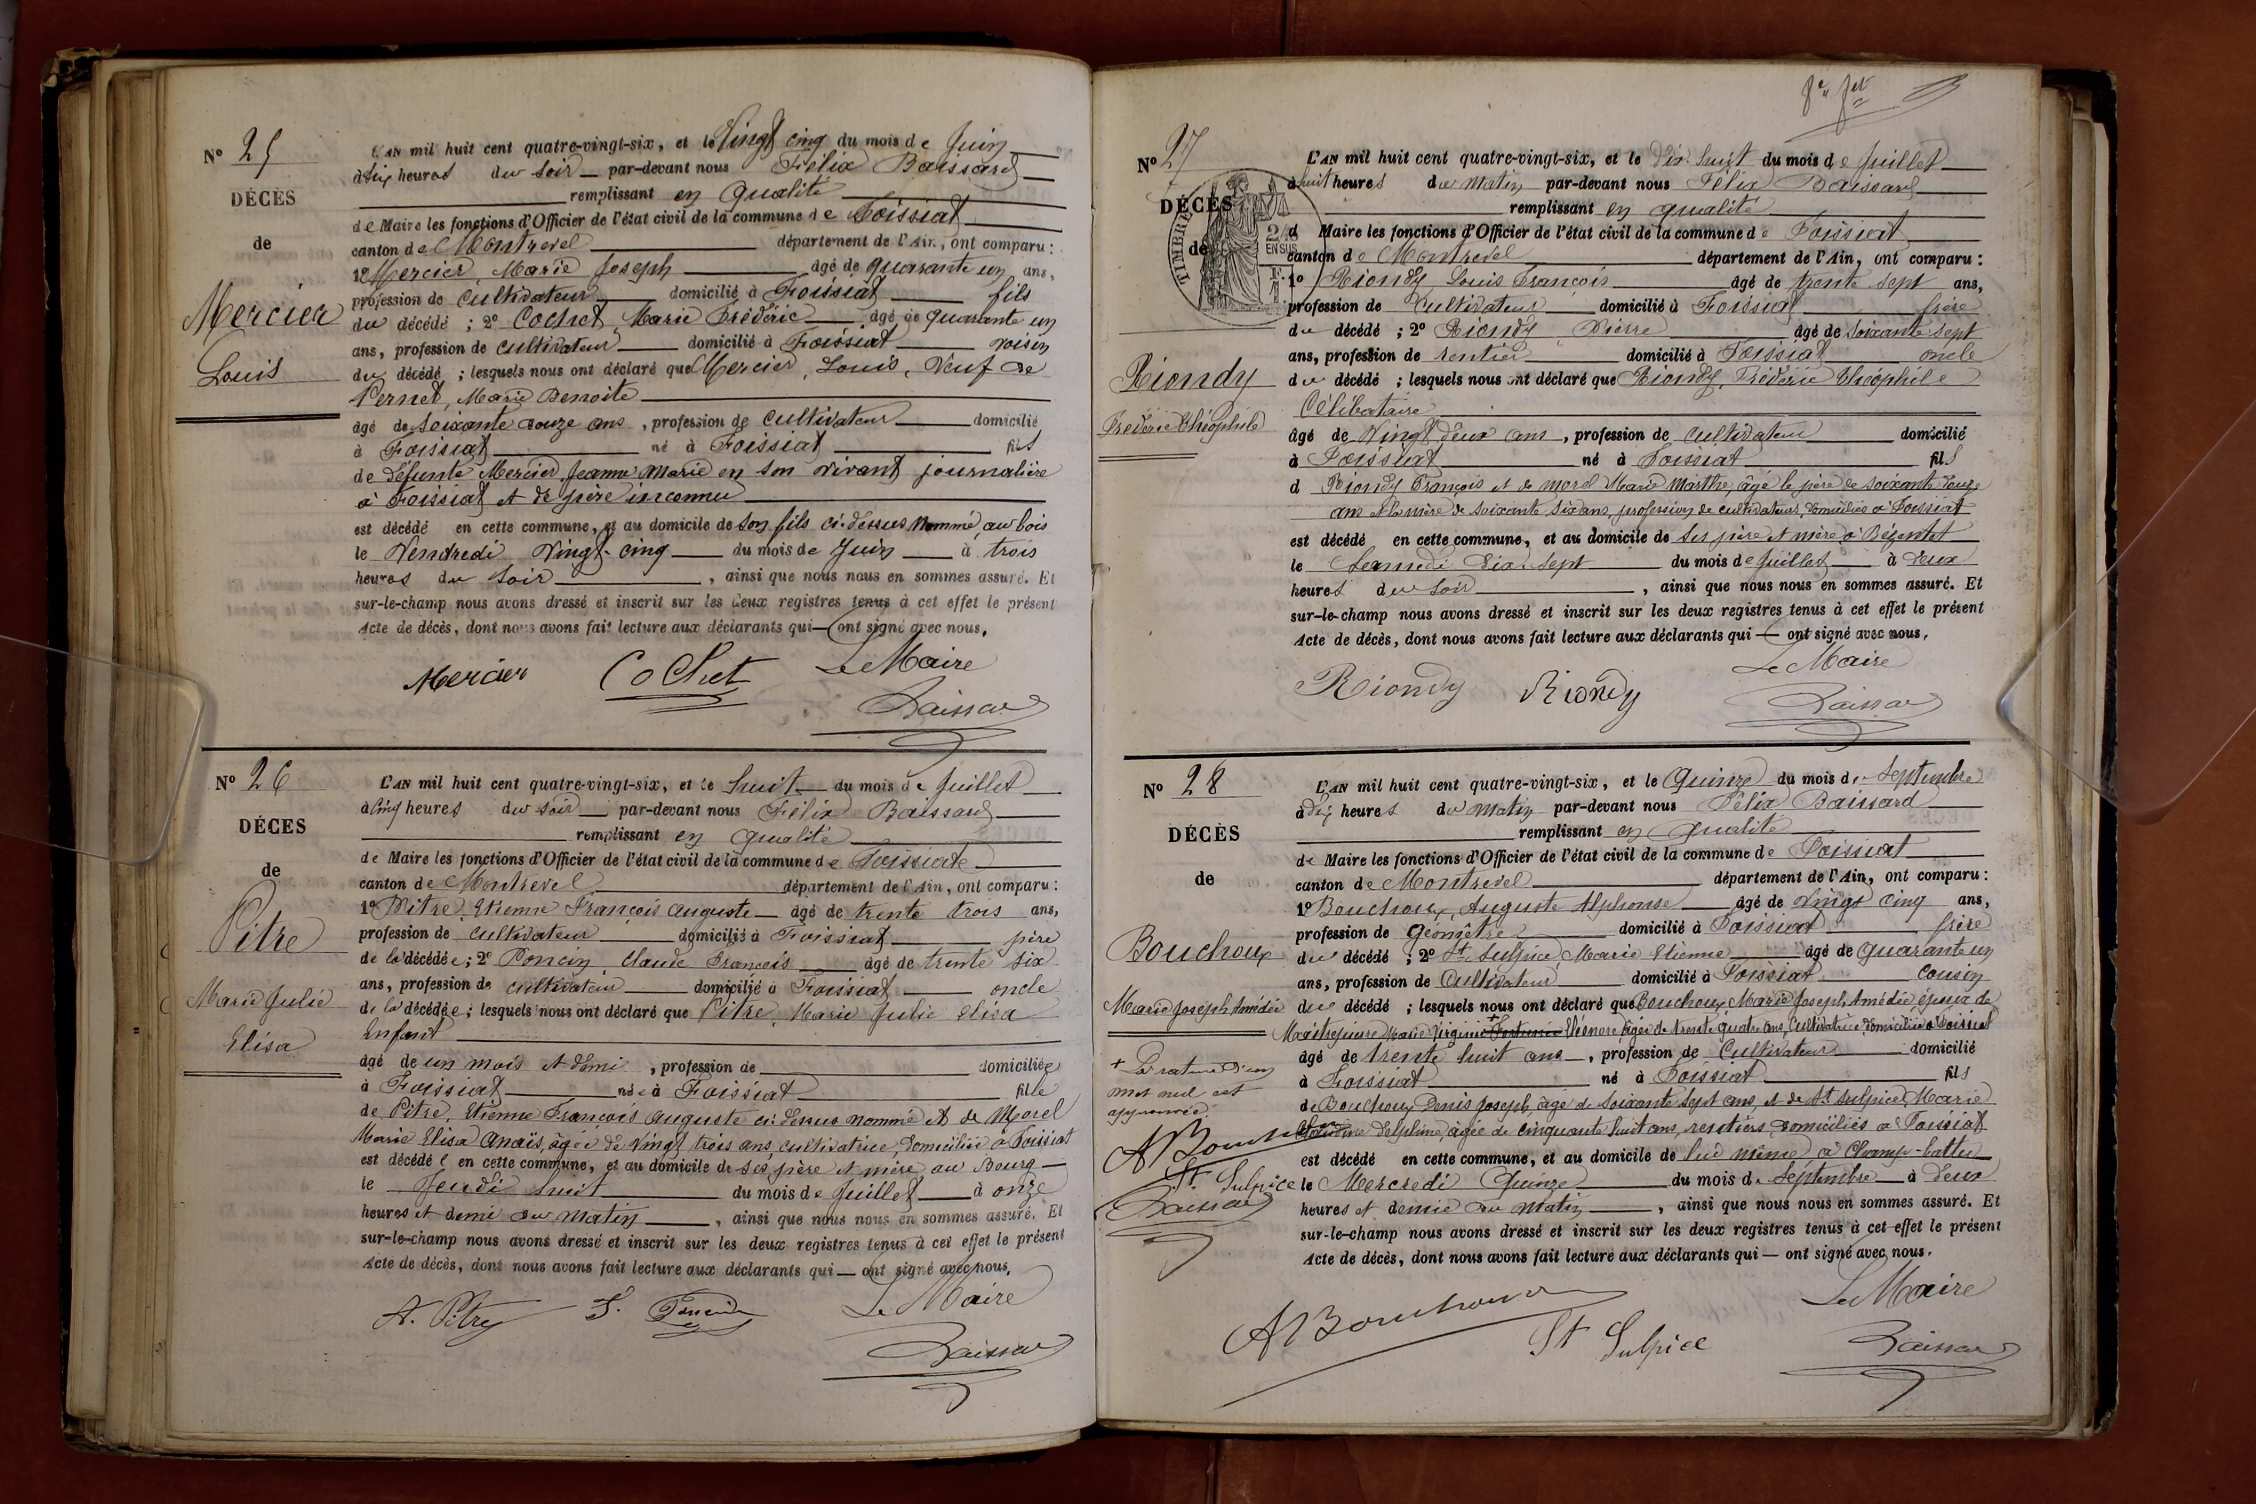 N° 25
DÉCÈS
de
Mercier
Louis
L'AN mil huit cent quatre-vingt-six, et le Vingt cinq du mois de Juin
à six heures du soir par-devant nous Félix Baissard
remplissant en qualité
de Maire les fonctions d'Officier de l'état civil de la commune de Foissiat
canton de Montrevel département de l'Ain, ont comparu :
1° Mercier, Marie Joseph âgé de quarante un ans,
profession de cultivateur domicilié à Foissiat fils
du décédé ; 2° Cochet, Marie Frédéric âgé de quarante un
ans, profession de cultivateur domicilié à Foissiat voisin
du décédé ; lesquels nous ont déclaré que Mercier, Louis, Veuf de
Pernet, Marie Benoite
âgé de soixante douze ans, profession de cultivateur domicilié
à Foissiat né à Foissiat fils
de défunte Mercier Jeanne Marie en son vivant journalière
à Foissiat et de père inconnu
est décédé en cette commune, et au domicile de son fils ci-dessus nommé, au bois
le Vendredi Vingt-cinq du mois de Juin à trois
heures du soir, ainsi que nous nous en sommes assuré. Et
sur-le-champ nous avons dressé et inscrit sur les deux registres tenus à cet effet le présent
Acte de décès, dont nous avons fait lecture aux déclarants qui — ont signé avec nous.
Mercier Cochet Le Maire
Baissard
N° 26
DÉCES
de
Pitre
Marie Julie
Elisa
L'AN mil huit cent quatre-vingt-six, et le huit du mois de Juillet
à cinq heures du soir par-devant nous Félix Baissard
remplissant en qualité
de Maire les fonctions d'Officier de l'état civil de la commune de Foissiat
canton de Montrevel département de l'Ain, ont comparu :
1° Pitre, Etienne François Auguste âgé de trente trois ans,
profession de cultivateur domicilié à Foissiat père
de la décédée ; 2° Poncin, Claude François âgé de trente six
ans, profession de cultivateur domicilié à Foissiat oncle
de la décédée ; lesquels nous ont déclaré que Pitre, Marie Julie Elisa
Enfant
âgé de un mois et demi, profession de domiciliée
à Foissiat née à Foissiat fille
de Pitre, Etienne François Auguste ci-dessus nommé et de Morel
Marie Elisa Anaïs, âgée de vingt trois ans, cultivatrice, domiciliée à Foissiat
est décédée en cette commune, et au domicile de ses père et mère au Bourg
le Jeudi huit du mois de Juillet à onze
heures et demi du matin, ainsi que nous nous en sommes assuré. Et
sur-le-champ nous avons dressé et inscrit sur les deux registres tenus à cet effet le présent
Acte de décès, dont nous avons fait lecture aux déclarants qui — ont signé avec nous.
A. Pitre Poncin Le Maire
Baissard
N° 27
DÉCÈS
de
TIMBRE
2/10
EN SUS
Riondy
Frédéric Théophile
L'AN mil huit cent quatre-vingt-six, et le dix huit du mois de Juillet
à huit heures du matin par-devant nous Félix Baissard
remplissant en qualité
d Maire les fonctions d'Officier de l'état civil de la commune de Foissiat
canton de Montrevel département de l'Ain, ont comparu :
1° Riondy, Louis François âgé de trente sept ans,
profession de cultivateur domicilié à Foissiat frère
du décédé ; 2° Riondy, Pierre âgé de soixante sept
ans, profession de rentier domicilié à Foissiat oncle
du décédé ; lesquels nous ont déclaré que Riondy, Frédéric Théophile
Célibataire
âgé de Vingt deux ans, profession de cultivateur domicilié
à Foissiat né à Foissiat fils
d Riondy François et de Morel Marie Marthe, âgé le père de soixante douze
ans et la mère de soixante six ans, profession de cultivateurs, domiciliés à Foissiat
est décédé en cette commune, et au domicile de ses père et mère à Bézentet
le Samedi Dix-sept du mois de Juillet à deux
heures du soir, ainsi que nous nous en sommes assuré. Et
sur-le-champ nous avons dressé et inscrit sur les deux registres tenus à cet effet le présent
Acte de décès, dont nous avons fait lecture aux déclarants qui — ont signé avec nous.
Riondy Riondy Le Maire
Baissard
N° 28
DÉCÈS
de
Bouchoux
Marie Joseph Amédée
+ La rature d'un
mot nul est
approuvée
A Bouchoux
St Sulpice
Baissard
L'AN mil huit cent quatre-vingt-six, et le Quinze du mois de Septembre
à dix heures du matin par-devant nous Félix Baissard
remplissant en qualité
de Maire les fonctions d'Officier de l'état civil de la commune de Foissiat
canton de Montrevel département de l'Ain, ont comparu :
1° Bouchoux, Auguste Alphonse âgé de Vingt cinq ans,
profession de géomètre domicilié à Foissiat frère
du décédé ; 2° St Sulpice, Marie Etienne âgé de quarante un
ans, profession de Cultivateur domicilié à Foissiat Cousin
du décédé ; lesquels nous ont déclaré que Bouchoux, Marie Joseph Amédée époux de
Marie Virginie + Eléonore, âgée de trente quatre ans, Cultivatrice domiciliée à Foissiat
âgé de trente huit ans, profession de Cultivateur domicilié
à Foissiat né à Foissiat fils
de Bouchoux Denis Joseph, âgé de soixante sept ans, et de St Sulpice, Marie
Claudine Delphine, âgée de cinquante huit ans, rentiers, domiciliés à Foissiat
est décédé en cette commune, et au domicile de lui même à Champ-battu
le Mercredi Quinze du mois de Septembre à deux
heures et demie du matin, ainsi que nous nous en sommes assuré. Et
sur-le-champ nous avons dressé et inscrit sur les deux registres tenus à cet effet le présent
Acte de décès, dont nous avons fait lecture aux déclarants qui — ont signé avec nous.
A Bouchoux St Sulpice Le Maire
Baissard